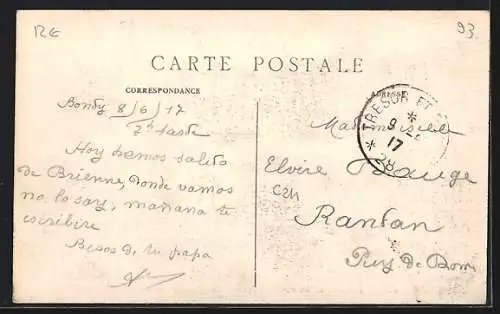 RG
93
CARTE POSTALE
CORRESPONDANCE
ADRESSE
Bondy 8/6/17
7h tarde
Hoy hemos salido
de Brienne, donde vamos
no lo say, mañana te
escribire
Besos de tu papa
TRESOR ET
* 9 - 17 *
28
Mademoiselle
Elvire Bauge
C24
Rantan
Puy de Dome